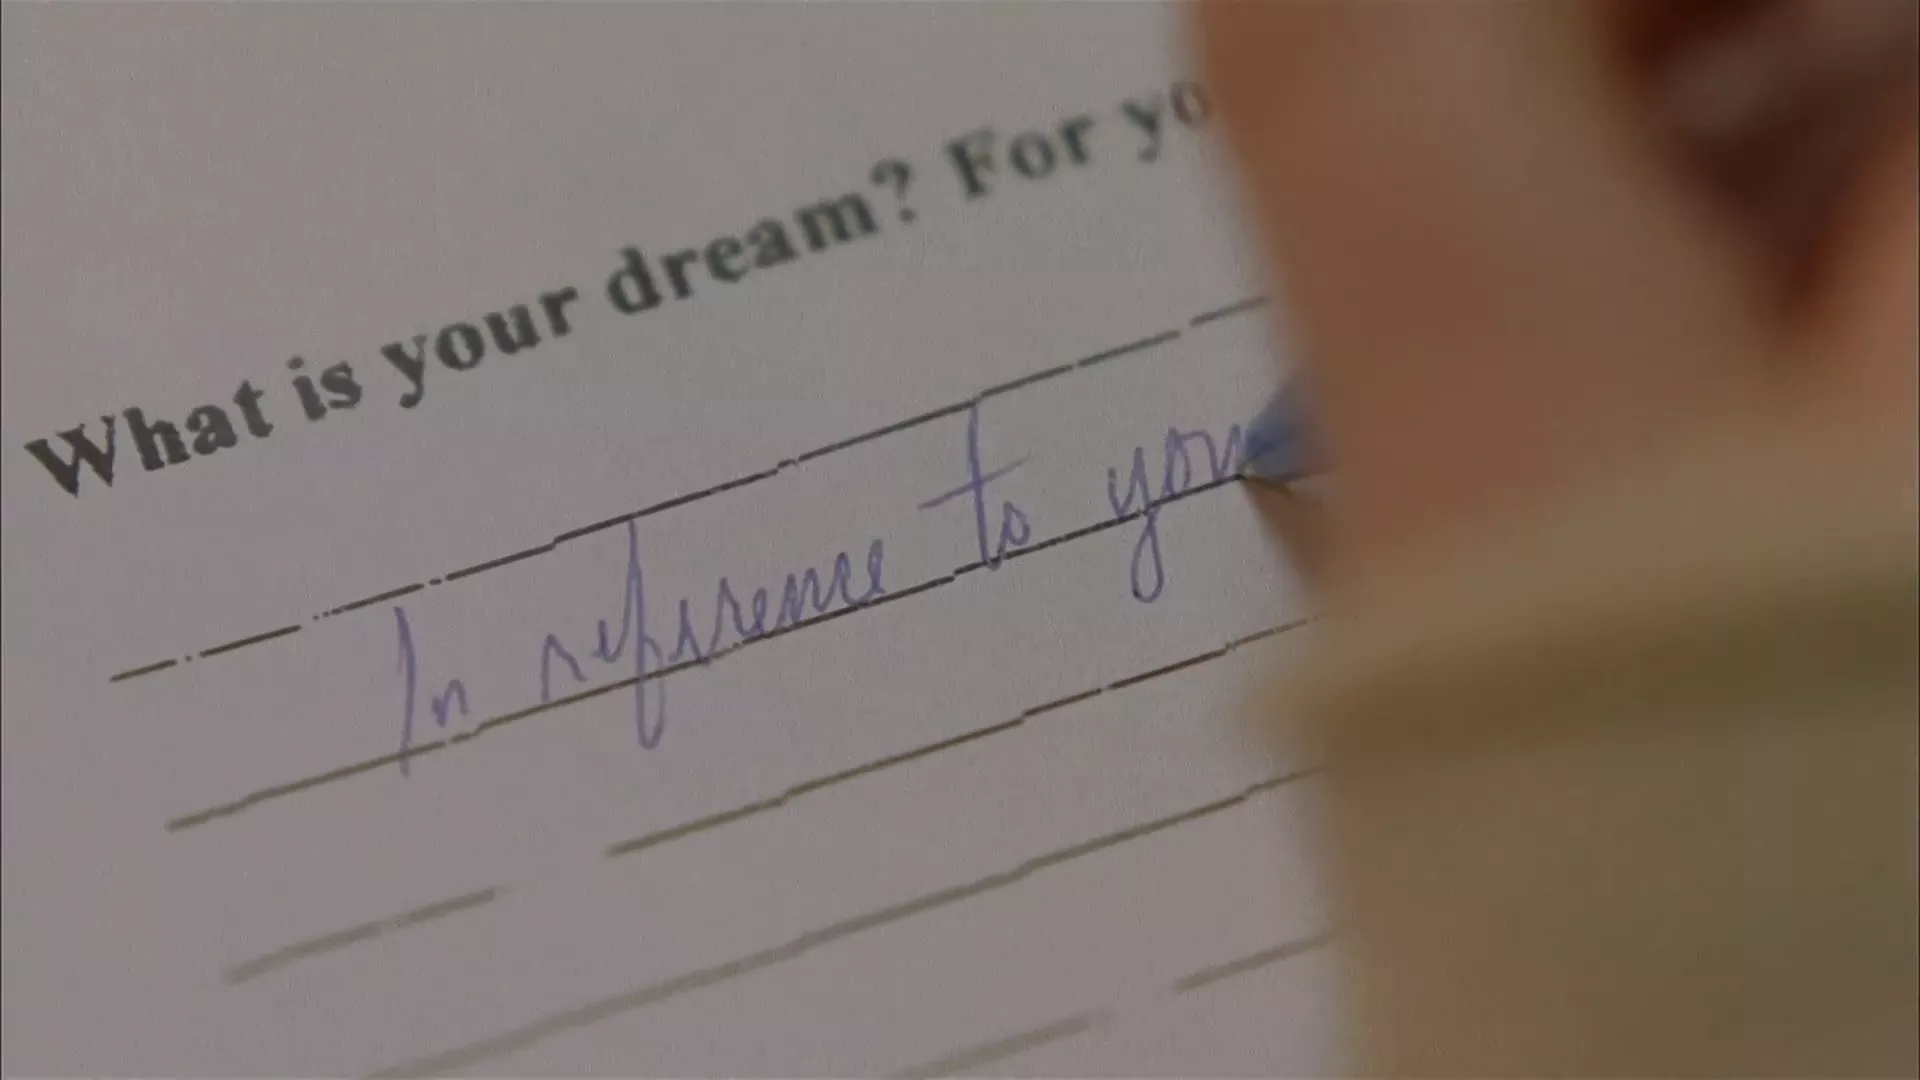 What is your dream? For yo
In reference to you